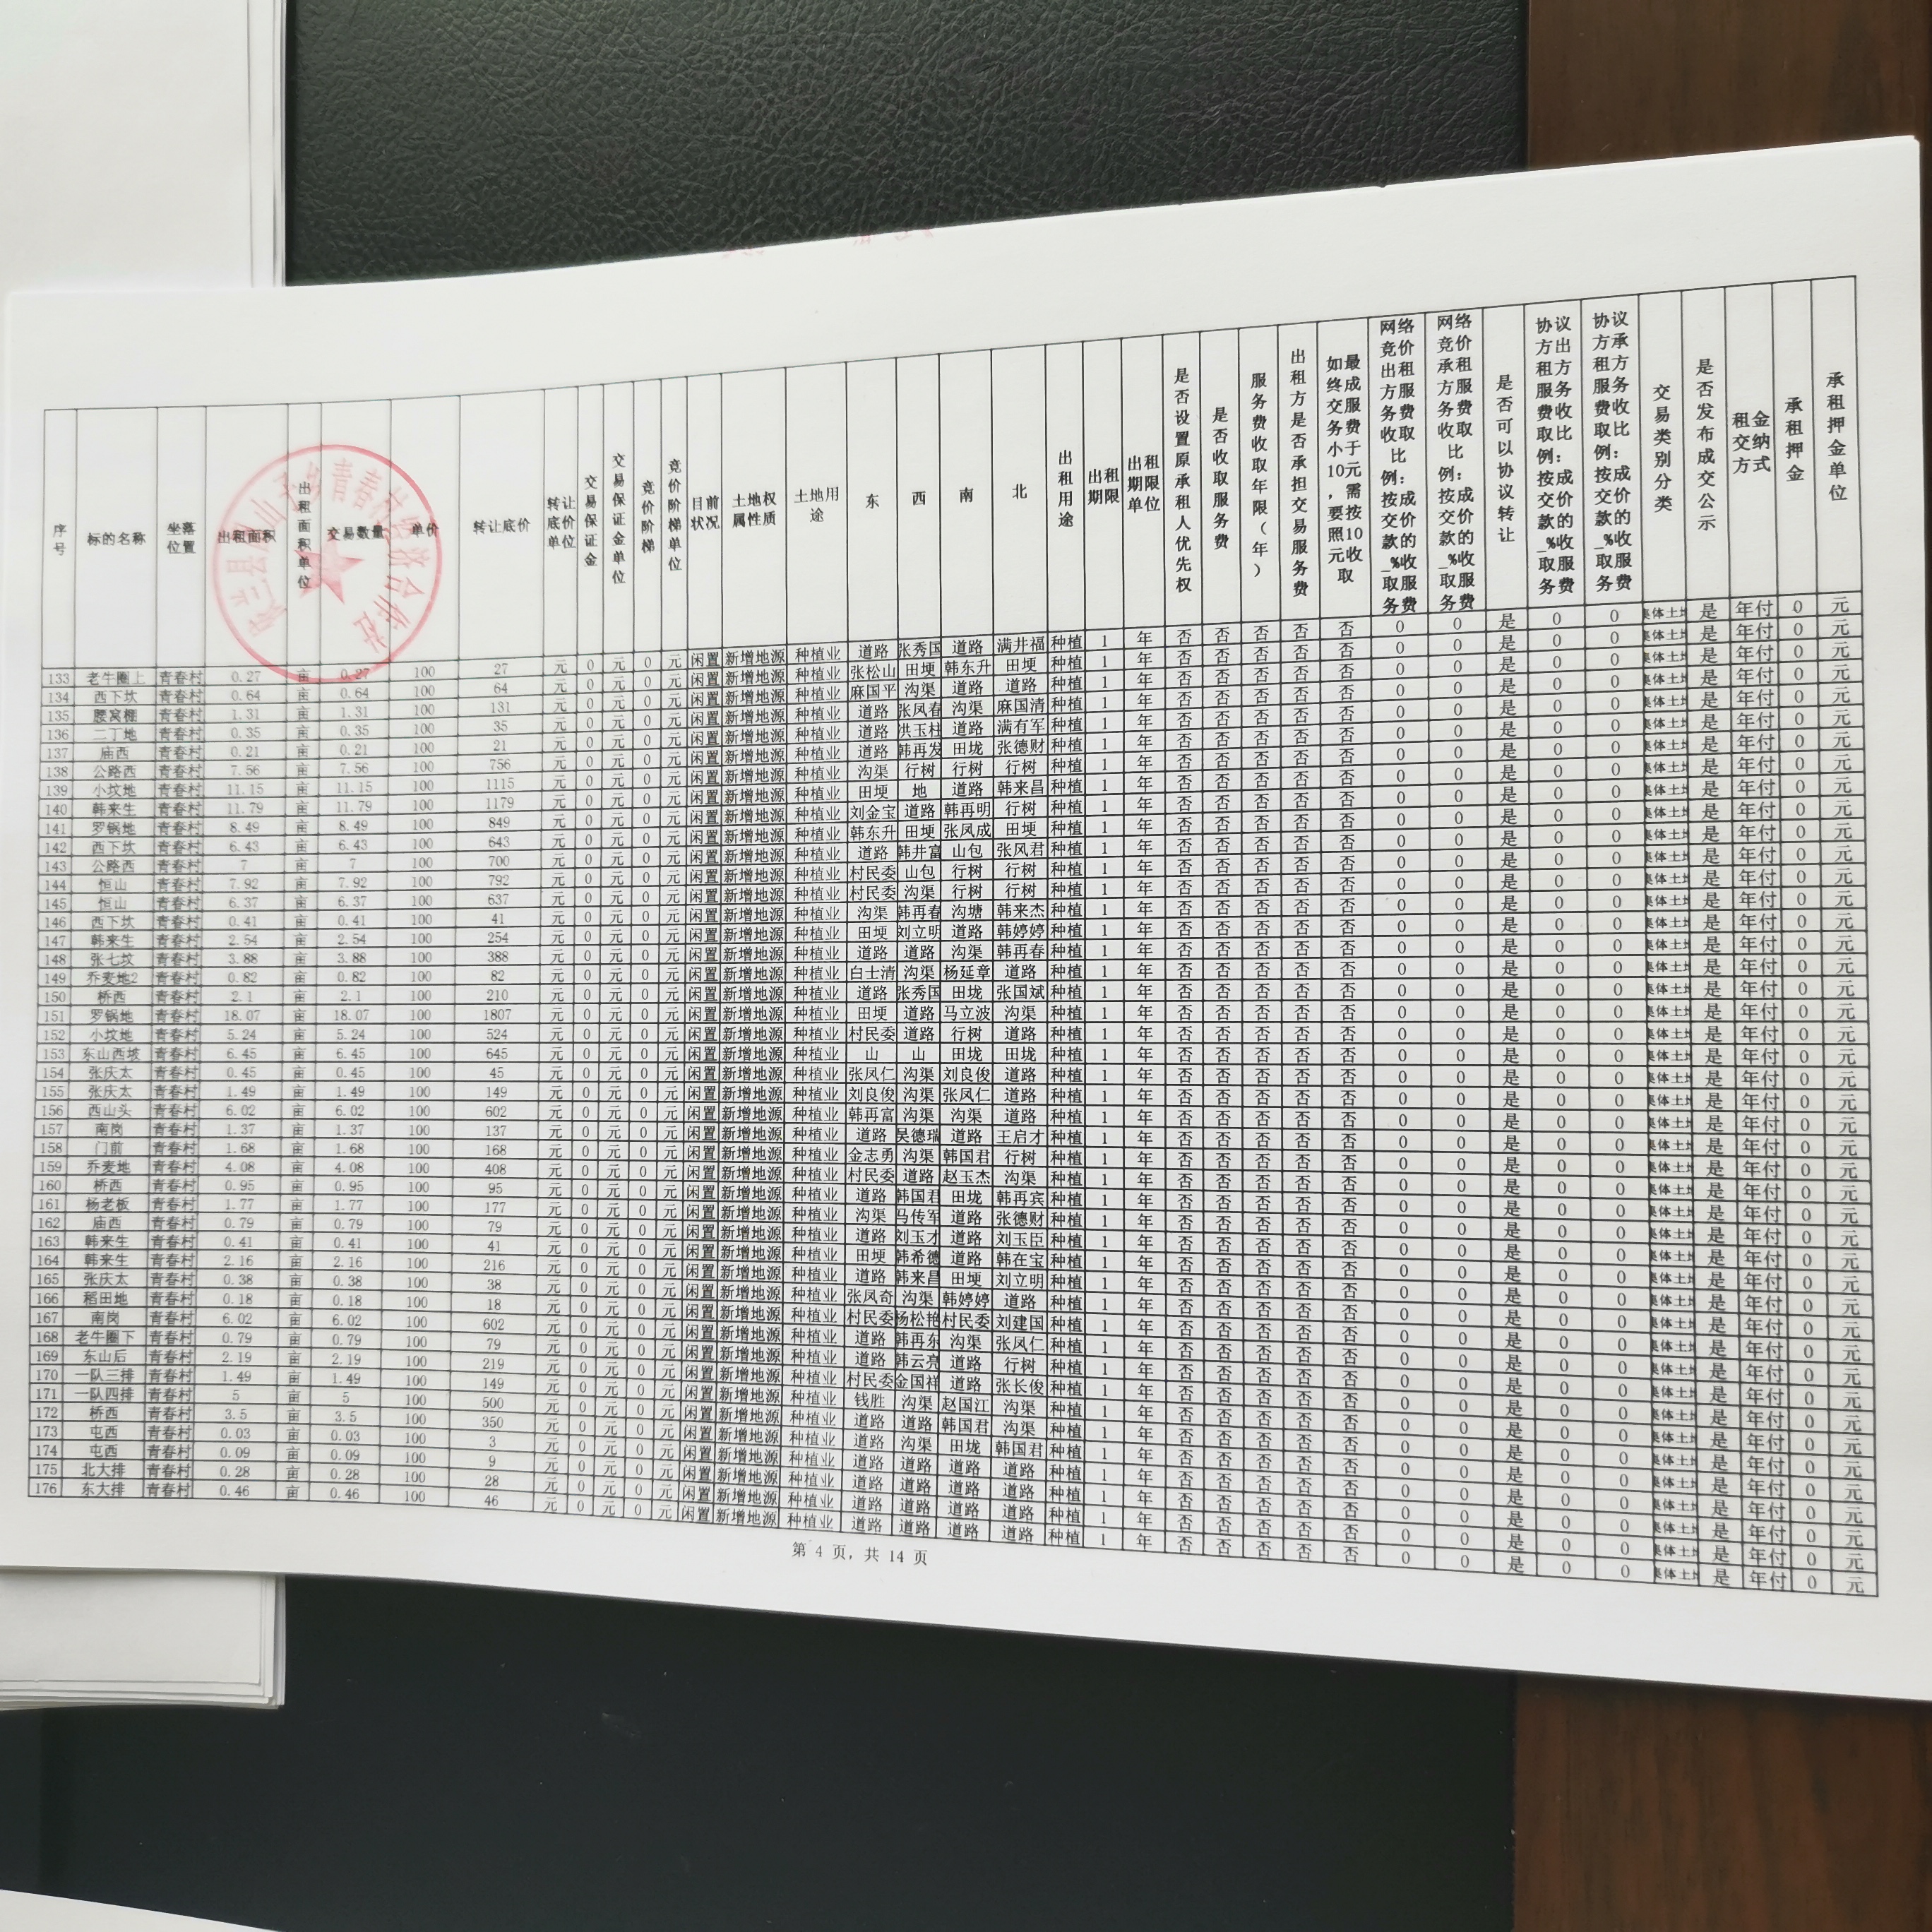 序号 标的名称 坐落位置 出租面积 出租面积单位 交易数量 单价 转让底价 转让底价单位 交易保证金 交易保证金单位 竞价阶梯 竞价阶梯单位 目前状况 土地权属性质 土地用途 东 西 南 北 出租用途 出租期限 出租期限单位 是否设置原承租人优先权 是否收取服务费 服务费收取年限（年） 出租方是否承担交易服务费 如最终成交服务费小于10元，需要按照10元收取 网络竞价出租方服务费收取比例：按成交价款的_%收取服务费 网络竞价承租方服务费收取比例：按成交价款的_%收取服务费 是否可以协议转让 协议方出租方服务费收取比例：按成交价款的_%收取服务费 协议方承租方服务费收取比例：按成交价款的_%收取服务费 交易类别分类 是否发布成交公示 租金交纳方式 承租押金 承租押金单位
133 老牛圈上 青春村 0.27 亩 0.27 100 27 元 0 元 0 元 闲置 新增地源 种植业 道路 张秀国 道路 满井福 种植 1 年 否 否 否 否 否 0 0 是 0 0 集体土地 是 年付 0 元
134 西下坎 青春村 0.64 亩 0.64 100 64 元 0 元 0 元 闲置 新增地源 种植业 张松山 田埂 韩东升 田埂 种植 1 年 否 否 否 否 否 0 0 是 0 0 集体土地 是 年付 0 元
135 腰窝棚 青春村 1.31 亩 1.31 100 131 元 0 元 0 元 闲置 新增地源 种植业 麻国平 沟渠 道路 道路 种植 1 年 否 否 否 否 否 0 0 是 0 0 集体土地 是 年付 0 元
136 二丁地 青春村 0.35 亩 0.35 100 35 元 0 元 0 元 闲置 新增地源 种植业 道路 张凤春 沟渠 麻国清 种植 1 年 否 否 否 否 否 0 0 是 0 0 集体土地 是 年付 0 元
137 庙西 青春村 0.21 亩 0.21 100 21 元 0 元 0 元 闲置 新增地源 种植业 道路 洪玉柱 道路 满有军 种植 1 年 否 否 否 否 否 0 0 是 0 0 集体土地 是 年付 0 元
138 公路西 青春村 7.56 亩 7.56 100 756 元 0 元 0 元 闲置 新增地源 种植业 道路 韩再发 田垅 张德财 种植 1 年 否 否 否 否 否 0 0 是 0 0 集体土地 是 年付 0 元
139 小坟地 青春村 11.15 亩 11.15 100 1115 元 0 元 0 元 闲置 新增地源 种植业 沟渠 行树 行树 行树 种植 1 年 否 否 否 否 否 0 0 是 0 0 集体土地 是 年付 0 元
140 韩来生 青春村 11.79 亩 11.79 100 1179 元 0 元 0 元 闲置 新增地源 种植业 田埂 地 道路 韩来昌 种植 1 年 否 否 否 否 否 0 0 是 0 0 集体土地 是 年付 0 元
141 罗锅地 青春村 8.49 亩 8.49 100 849 元 0 元 0 元 闲置 新增地源 种植业 刘金宝 道路 韩再明 行树 种植 1 年 否 否 否 否 否 0 0 是 0 0 集体土地 是 年付 0 元
142 西下坎 青春村 6.43 亩 6.43 100 643 元 0 元 0 元 闲置 新增地源 种植业 韩东升 田埂 张凤成 田埂 种植 1 年 否 否 否 否 否 0 0 是 0 0 集体土地 是 年付 0 元
143 公路西 青春村 7 亩 7 100 700 元 0 元 0 元 闲置 新增地源 种植业 道路 韩井富 山包 张风君 种植 1 年 否 否 否 否 否 0 0 是 0 0 集体土地 是 年付 0 元
144 恒山 青春村 7.92 亩 7.92 100 792 元 0 元 0 元 闲置 新增地源 种植业 村民委 山包 行树 行树 种植 1 年 否 否 否 否 否 0 0 是 0 0 集体土地 是 年付 0 元
145 恒山 青春村 6.37 亩 6.37 100 637 元 0 元 0 元 闲置 新增地源 种植业 村民委 沟渠 行树 行树 种植 1 年 否 否 否 否 否 0 0 是 0 0 集体土地 是 年付 0 元
146 西下坎 青春村 0.41 亩 0.41 100 41 元 0 元 0 元 闲置 新增地源 种植业 沟渠 韩再春 沟塘 韩来杰 种植 1 年 否 否 否 否 否 0 0 是 0 0 集体土地 是 年付 0 元
147 韩来生 青春村 2.54 亩 2.54 100 254 元 0 元 0 元 闲置 新增地源 种植业 田埂 刘立明 道路 韩婷婷 种植 1 年 否 否 否 否 否 0 0 是 0 0 集体土地 是 年付 0 元
148 张七坟 青春村 3.88 亩 3.88 100 388 元 0 元 0 元 闲置 新增地源 种植业 道路 道路 沟渠 韩再春 种植 1 年 否 否 否 否 否 0 0 是 0 0 集体土地 是 年付 0 元
149 乔麦地2 青春村 0.82 亩 0.82 100 82 元 0 元 0 元 闲置 新增地源 种植业 白士清 沟渠 杨延章 道路 种植 1 年 否 否 否 否 否 0 0 是 0 0 集体土地 是 年付 0 元
150 桥西 青春村 2.1 亩 2.1 100 210 元 0 元 0 元 闲置 新增地源 种植业 道路 张秀国 田垅 张国斌 种植 1 年 否 否 否 否 否 0 0 是 0 0 集体土地 是 年付 0 元
151 罗锅地 青春村 18.07 亩 18.07 100 1807 元 0 元 0 元 闲置 新增地源 种植业 田埂 道路 马立波 沟渠 种植 1 年 否 否 否 否 否 0 0 是 0 0 集体土地 是 年付 0 元
152 小坟地 青春村 5.24 亩 5.24 100 524 元 0 元 0 元 闲置 新增地源 种植业 村民委 道路 行树 道路 种植 1 年 否 否 否 否 否 0 0 是 0 0 集体土地 是 年付 0 元
153 东山西坡 青春村 6.45 亩 6.45 100 645 元 0 元 0 元 闲置 新增地源 种植业 山 山 田垅 田垅 种植 1 年 否 否 否 否 否 0 0 是 0 0 集体土地 是 年付 0 元
154 张庆太 青春村 0.45 亩 0.45 100 45 元 0 元 0 元 闲置 新增地源 种植业 张凤仁 沟渠 刘良俊 道路 种植 1 年 否 否 否 否 否 0 0 是 0 0 集体土地 是 年付 0 元
155 张庆太 青春村 1.49 亩 1.49 100 149 元 0 元 0 元 闲置 新增地源 种植业 刘良俊 沟渠 张凤仁 道路 种植 1 年 否 否 否 否 否 0 0 是 0 0 集体土地 是 年付 0 元
156 西山头 青春村 6.02 亩 6.02 100 602 元 0 元 0 元 闲置 新增地源 种植业 韩再富 沟渠 沟渠 道路 种植 1 年 否 否 否 否 否 0 0 是 0 0 集体土地 是 年付 0 元
157 南岗 青春村 1.37 亩 1.37 100 137 元 0 元 0 元 闲置 新增地源 种植业 道路 吴德瑞 道路 王启才 种植 1 年 否 否 否 否 否 0 0 是 0 0 集体土地 是 年付 0 元
158 门前 青春村 1.68 亩 1.68 100 168 元 0 元 0 元 闲置 新增地源 种植业 金志勇 沟渠 韩国君 行树 种植 1 年 否 否 否 否 否 0 0 是 0 0 集体土地 是 年付 0 元
159 乔麦地 青春村 4.08 亩 4.08 100 408 元 0 元 0 元 闲置 新增地源 种植业 村民委 道路 赵玉杰 沟渠 种植 1 年 否 否 否 否 否 0 0 是 0 0 集体土地 是 年付 0 元
160 桥西 青春村 0.95 亩 0.95 100 95 元 0 元 0 元 闲置 新增地源 种植业 道路 韩国君 田垅 韩再宾 种植 1 年 否 否 否 否 否 0 0 是 0 0 集体土地 是 年付 0 元
161 杨老板 青春村 1.77 亩 1.77 100 177 元 0 元 0 元 闲置 新增地源 种植业 沟渠 马传军 道路 张德财 种植 1 年 否 否 否 否 否 0 0 是 0 0 集体土地 是 年付 0 元
162 庙西 青春村 0.79 亩 0.79 100 79 元 0 元 0 元 闲置 新增地源 种植业 道路 刘玉才 道路 刘玉臣 种植 1 年 否 否 否 否 否 0 0 是 0 0 集体土地 是 年付 0 元
163 韩来生 青春村 0.41 亩 0.41 100 41 元 0 元 0 元 闲置 新增地源 种植业 田埂 韩希德 道路 韩在宝 种植 1 年 否 否 否 否 否 0 0 是 0 0 集体土地 是 年付 0 元
164 韩来生 青春村 2.16 亩 2.16 100 216 元 0 元 0 元 闲置 新增地源 种植业 道路 韩来昌 田埂 刘立明 种植 1 年 否 否 否 否 否 0 0 是 0 0 集体土地 是 年付 0 元
165 张庆太 青春村 0.38 亩 0.38 100 38 元 0 元 0 元 闲置 新增地源 种植业 张凤奇 沟渠 韩婷婷 道路 种植 1 年 否 否 否 否 否 0 0 是 0 0 集体土地 是 年付 0 元
166 稻田地 青春村 0.18 亩 0.18 100 18 元 0 元 0 元 闲置 新增地源 种植业 村民委 杨松艳 村民委 刘建国 种植 1 年 否 否 否 否 否 0 0 是 0 0 集体土地 是 年付 0 元
167 南岗 青春村 6.02 亩 6.02 100 602 元 0 元 0 元 闲置 新增地源 种植业 道路 韩再东 沟渠 张凤仁 种植 1 年 否 否 否 否 否 0 0 是 0 0 集体土地 是 年付 0 元
168 老牛圈下 青春村 0.79 亩 0.79 100 79 元 0 元 0 元 闲置 新增地源 种植业 道路 韩云亮 道路 行树 种植 1 年 否 否 否 否 否 0 0 是 0 0 集体土地 是 年付 0 元
169 东山后 青春村 2.19 亩 2.19 100 219 元 0 元 0 元 闲置 新增地源 种植业 村民委 金国祥 道路 张长俊 种植 1 年 否 否 否 否 否 0 0 是 0 0 集体土地 是 年付 0 元
170 一队三排 青春村 1.49 亩 1.49 100 149 元 0 元 0 元 闲置 新增地源 种植业 钱胜 沟渠 赵国江 沟渠 种植 1 年 否 否 否 否 否 0 0 是 0 0 集体土地 是 年付 0 元
171 一队四排 青春村 5 亩 5 100 500 元 0 元 0 元 闲置 新增地源 种植业 道路 道路 韩国君 沟渠 种植 1 年 否 否 否 否 否 0 0 是 0 0 集体土地 是 年付 0 元
172 桥西 青春村 3.5 亩 3.5 100 350 元 0 元 0 元 闲置 新增地源 种植业 道路 沟渠 田垅 韩国君 种植 1 年 否 否 否 否 否 0 0 是 0 0 集体土地 是 年付 0 元
173 屯西 青春村 0.03 亩 0.03 100 3 元 0 元 0 元 闲置 新增地源 种植业 道路 道路 道路 道路 种植 1 年 否 否 否 否 否 0 0 是 0 0 集体土地 是 年付 0 元
174 屯西 青春村 0.09 亩 0.09 100 9 元 0 元 0 元 闲置 新增地源 种植业 道路 道路 道路 道路 种植 1 年 否 否 否 否 否 0 0 是 0 0 集体土地 是 年付 0 元
175 北大排 青春村 0.28 亩 0.28 100 28 元 0 元 0 元 闲置 新增地源 种植业 道路 道路 道路 道路 种植 1 年 否 否 否 否 否 0 0 是 0 0 集体土地 是 年付 0 元
176 东大排 青春村 0.46 亩 0.46 100 46 元 0 元 0 元 闲置 新增地源 种植业 道路 道路 道路 道路 种植 1 年 否 否 否 否 否 0 0 是 0 0 集体土地 是 年付 0 元
第 4 页，共 14 页